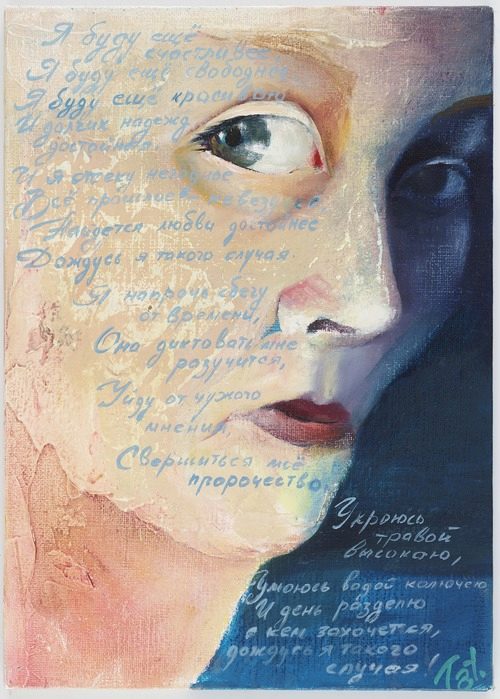 Я буду ещё
счастливее,
Я буду ещё свободнее,
Я буду ещё красивою
И долгих надежд
достойна.
И я отсеку негодное
Всё прошлое
Найдется любви достойнее
Дождусь я такого случая.
Я напрочь сбегу
от времени,
Оно диктовать мне
разучится,
Уйду от чужого
мнения,
Свершиться моё
пророчество,
Укроюсь
травой
высокою,
Умоюсь водой колючею
И день разделю
с кем захочется,
дождусь я такого
случая!